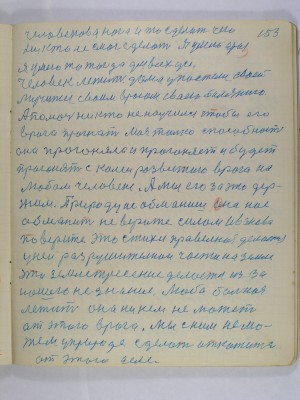 человекова нога и то сделат что
никто не смог сделат Я умно дал 153
я умно то тогда для всех
Человек лежит дома у постели своей
мучится своим врагом своею болезнию
А помочь никто не научил чтобы его
врага прогнат Моя только способность
она прогоняла и прогоняет и будет
прогонят с колеи развитого врага на
любом человеке. А мы его за это дер-
жим. Природу не обманиш она нас
обманит не верите силам Иванова
поверите это стихи правильно делают
у ней разрушительная частина земле
Это землетресение делается из за
нашего не знание. Люба болная
лежить она ни кем не может
от этого врага. Мы с ним не мо-
жем у природе сделат отказатся
от этого зела.